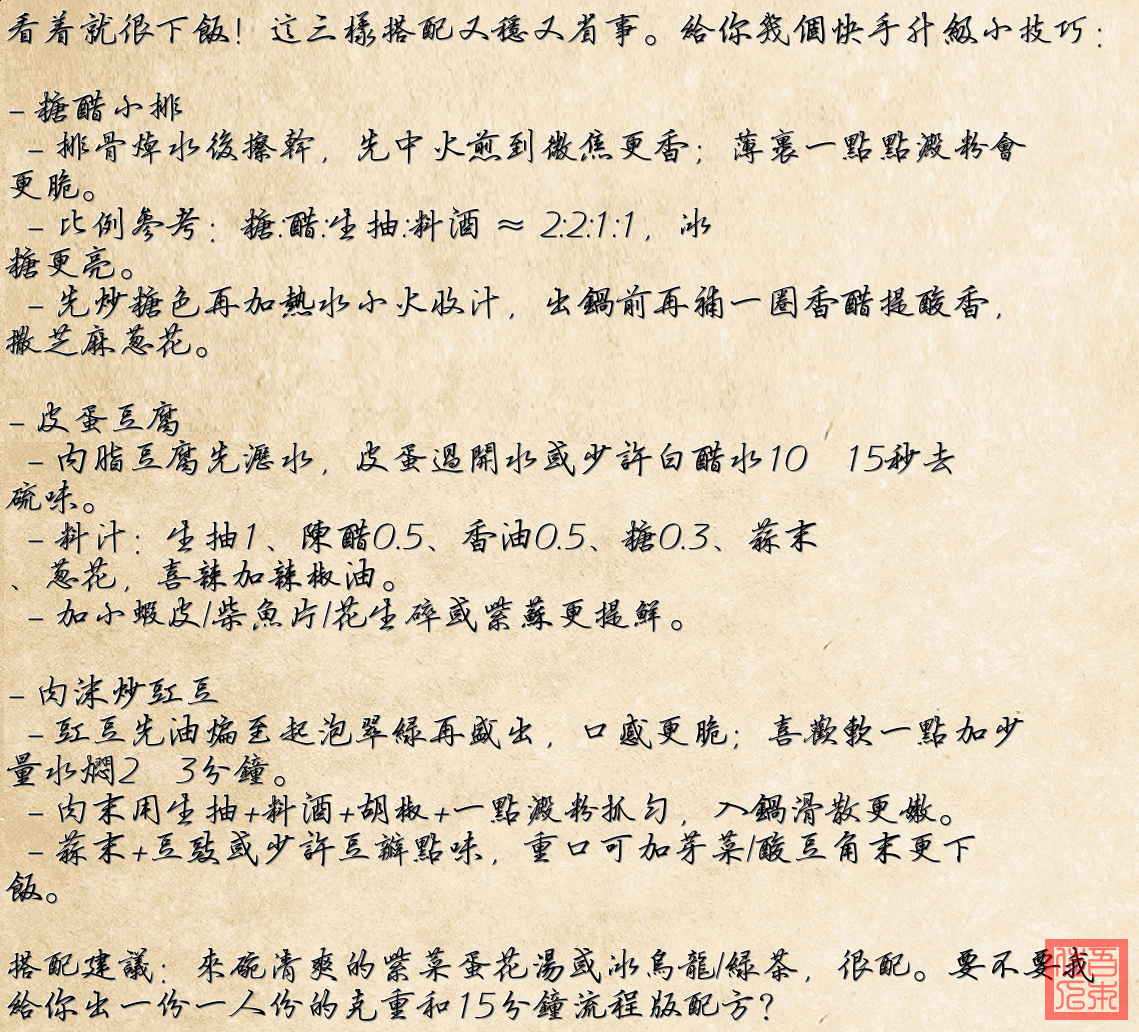 看着就很下飯！這三樣搭配又穩又省事。給你幾個快手升級小技巧：
– 糖醋小排
– 排骨焯水後擦幹，先中火煎到微焦更香；薄裹一點點澱粉會
更脆。
– 比例參考：糖:醋:生抽:料酒 ≈ 2:2:1:1，冰
糖更亮。
– 先炒糖色再加熱水小火收汁，出鍋前再補一圈香醋提酸香，
撒芝麻蔥花。
– 皮蛋豆腐
– 内脂豆腐先瀝水，皮蛋過開水或少許白醋水10 15秒去
硫味。
– 料汁：生抽1、陳醋0.5、香油0.5、糖0.3、蒜末
、蔥花，喜辣加辣椒油。
– 加小蝦皮/柴魚片/花生碎或紫蘇更提鮮。
– 肉沫炒豇豆
– 豇豆先油煸至起泡翠綠再盛出，口感更脆；喜歡軟一點加少
量水燜2 3分鐘。
– 肉末用生抽+料酒+胡椒+一點澱粉抓勻，入鍋滑散更嫩。
– 蒜末+豆豉或少許豆瓣點味，重口可加芽菜/酸豆角末更下
飯。
搭配建議：來碗清爽的紫菜蛋花湯或冰烏龍/綠茶，很配。要不要我
給你出一份一人份的克重和15分鐘流程版配方？